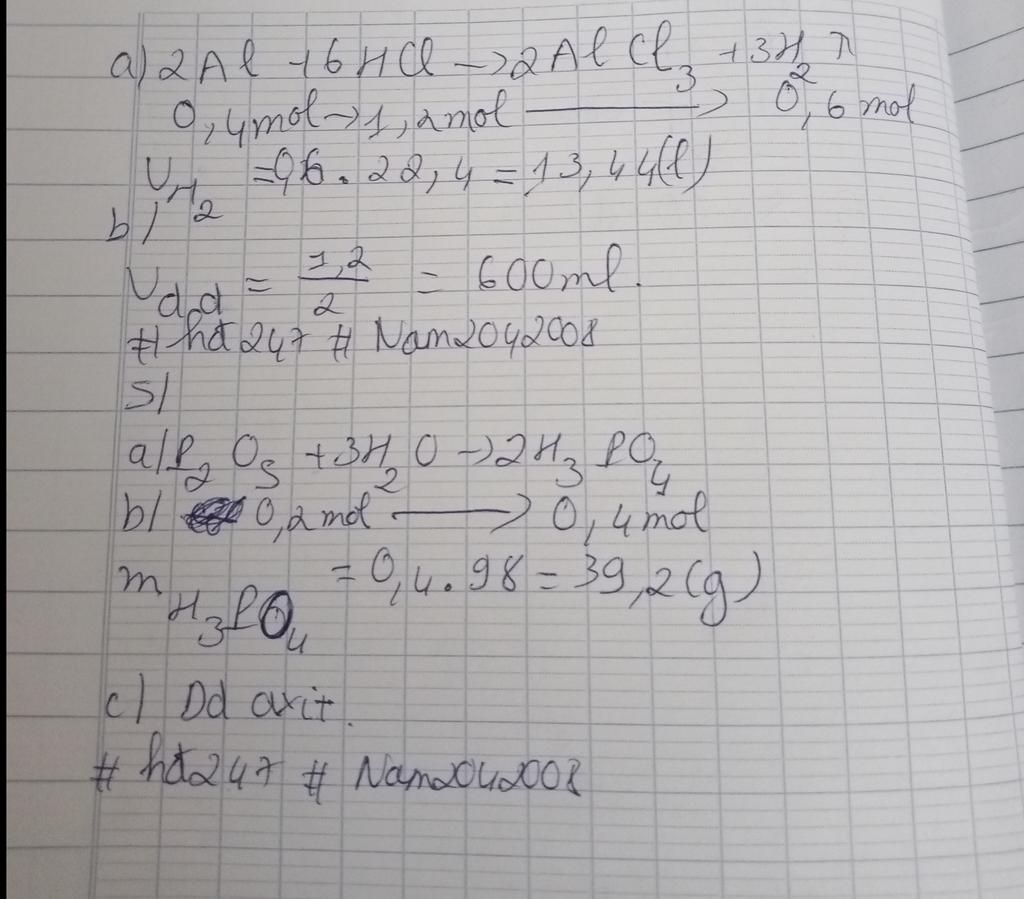 a) 2Al + 6HCl → 2AlCl₃ + 3H₂ ↑
0,4mol → 1,2mol → 0,6 mol
V H₂ = 0,6 . 22,4 = 13,44(l)
b/
V dd = 1,2/2 = 600ml.
# hdt247 # Nam2042008
5/
a/ P₂O₅ + 3H₂O → 2H₃PO₄
b/ 0,2mol → 0,4mol
m H₃PO₄ = 0,4 . 98 = 39,2(g)
c/ Dd axit.
# hdt247 # Nam2042008